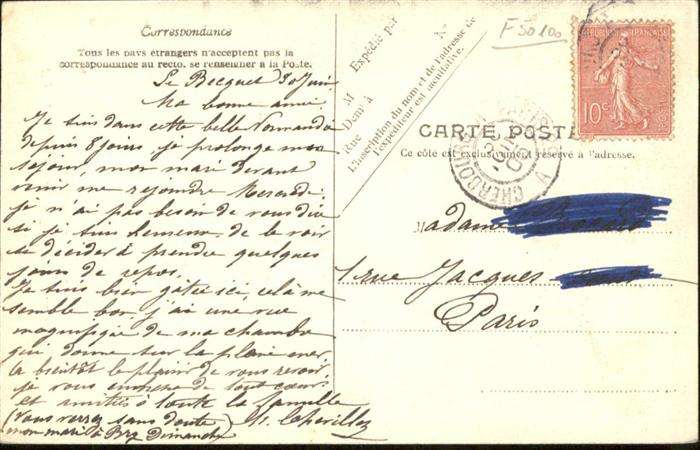 Correspondance
Tous les pays étrangers n'acceptent pas la
correspondance au recto. se renseigner à la Poste.
Le Becquet 30 Juin
Ma bonne amie,
Je suis dans cette belle Normandie
depuis 8 jours, je prolonge mon
séjour, mon mari devant
venir me rejoindre Mercredi
je n'ai pas besoin de vous dire
si je suis heureuse de le voir
se décider à prendre quelques
jours de repos.
Je suis bien gâtée ici, cela me
semble bon, j'ai une vue
magnifique de ma chambre
qui donne sur la pleine mer.
à bientôt le plaisir de vous revoir
je vous embrasse de tout cœur
et amitiés à toute la famille
(Vous verrez sans doute
mon mari à Dimanche
Expédié par
M
Dem^t à
Rue
N°
L'inscription du nom et de l'adresse de
l'expéditeur est facultative.
F 50100
RÉPUBLIQUE FRANÇAISE
10 c
POSTES
CARTE POSTALE
Ce côté est exclusivement réservé à l'adresse.
CHERBOURG
Madame
1 rue Jacques
Paris